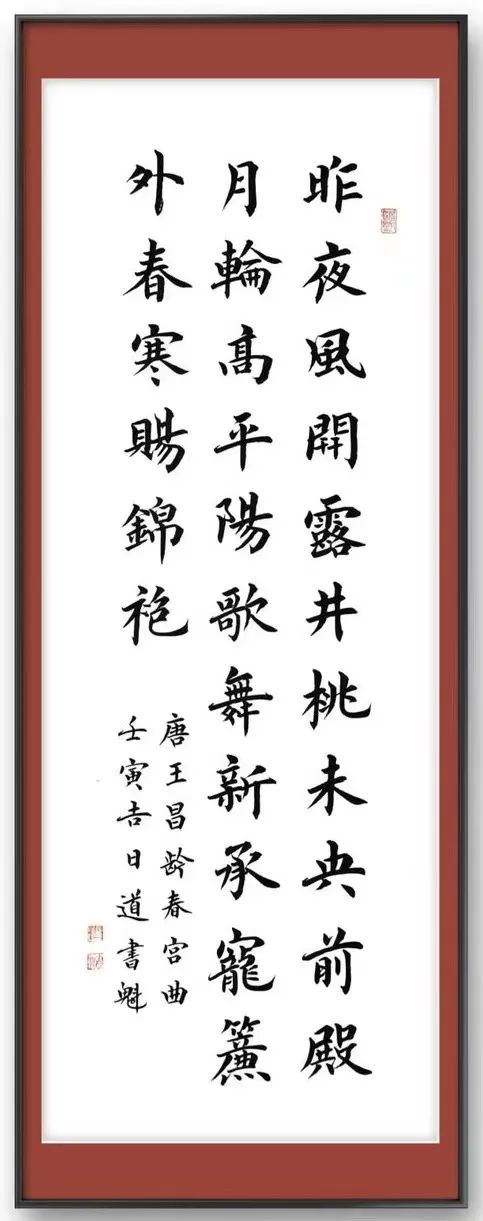 昨夜風開露井桃未央前殿
月輪高平陽歌舞新承寵簾
外春寒賜錦袍
唐王昌齡春宮曲
壬寅吉日道書魁